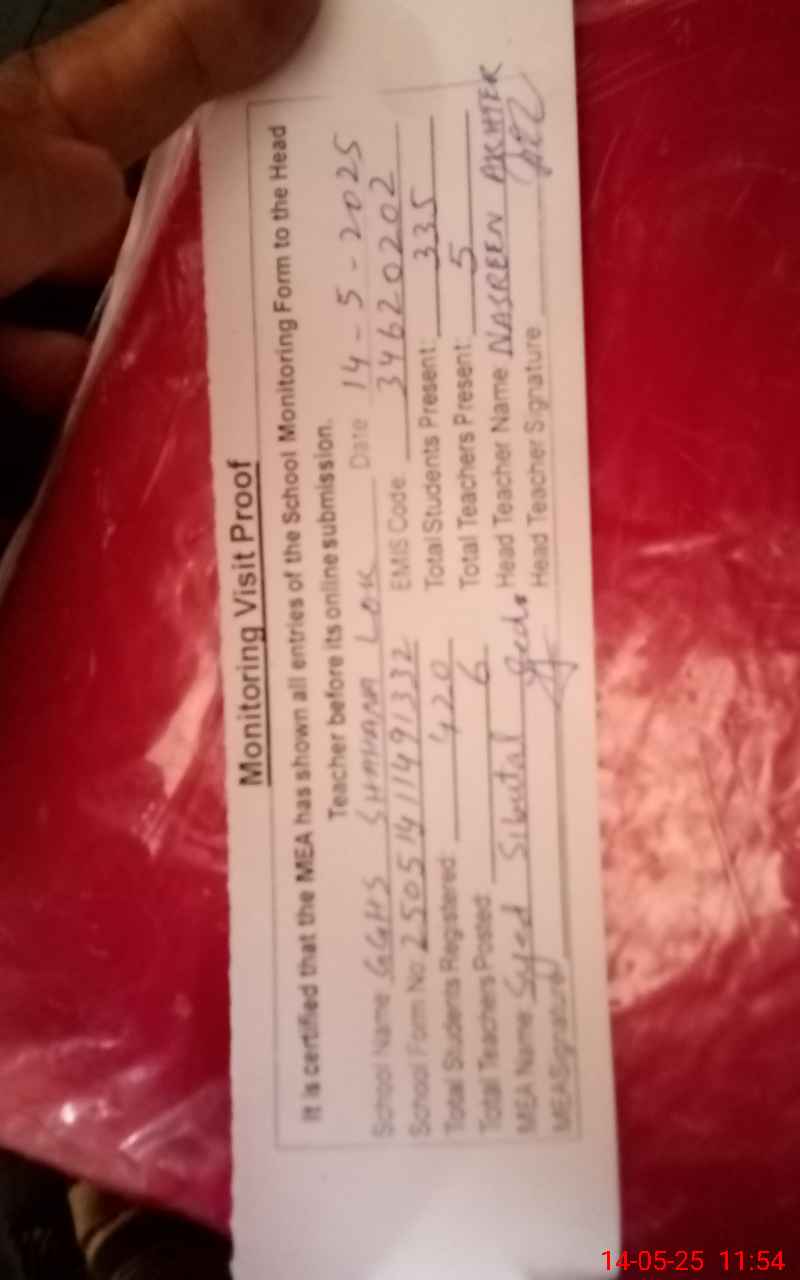 Monitoring Visit Proof
It is certified that the MEA has shown all entries of the School Monitoring Form to the Head
Teacher before its online submission.
School Name GGHS SHAHANA LOK Date 14-5-2025
School Form No 25051411491332 EMIS Code: 34620202
Total Students Registered: 420 Total Students Present: 335
Total Teachers Posted: 6 Total Teachers Present: 5
MEA Name: Syed Head Teacher Name NASREEN AKHTER
MEA Signature Head Teacher Signature
14-05-25 11:54